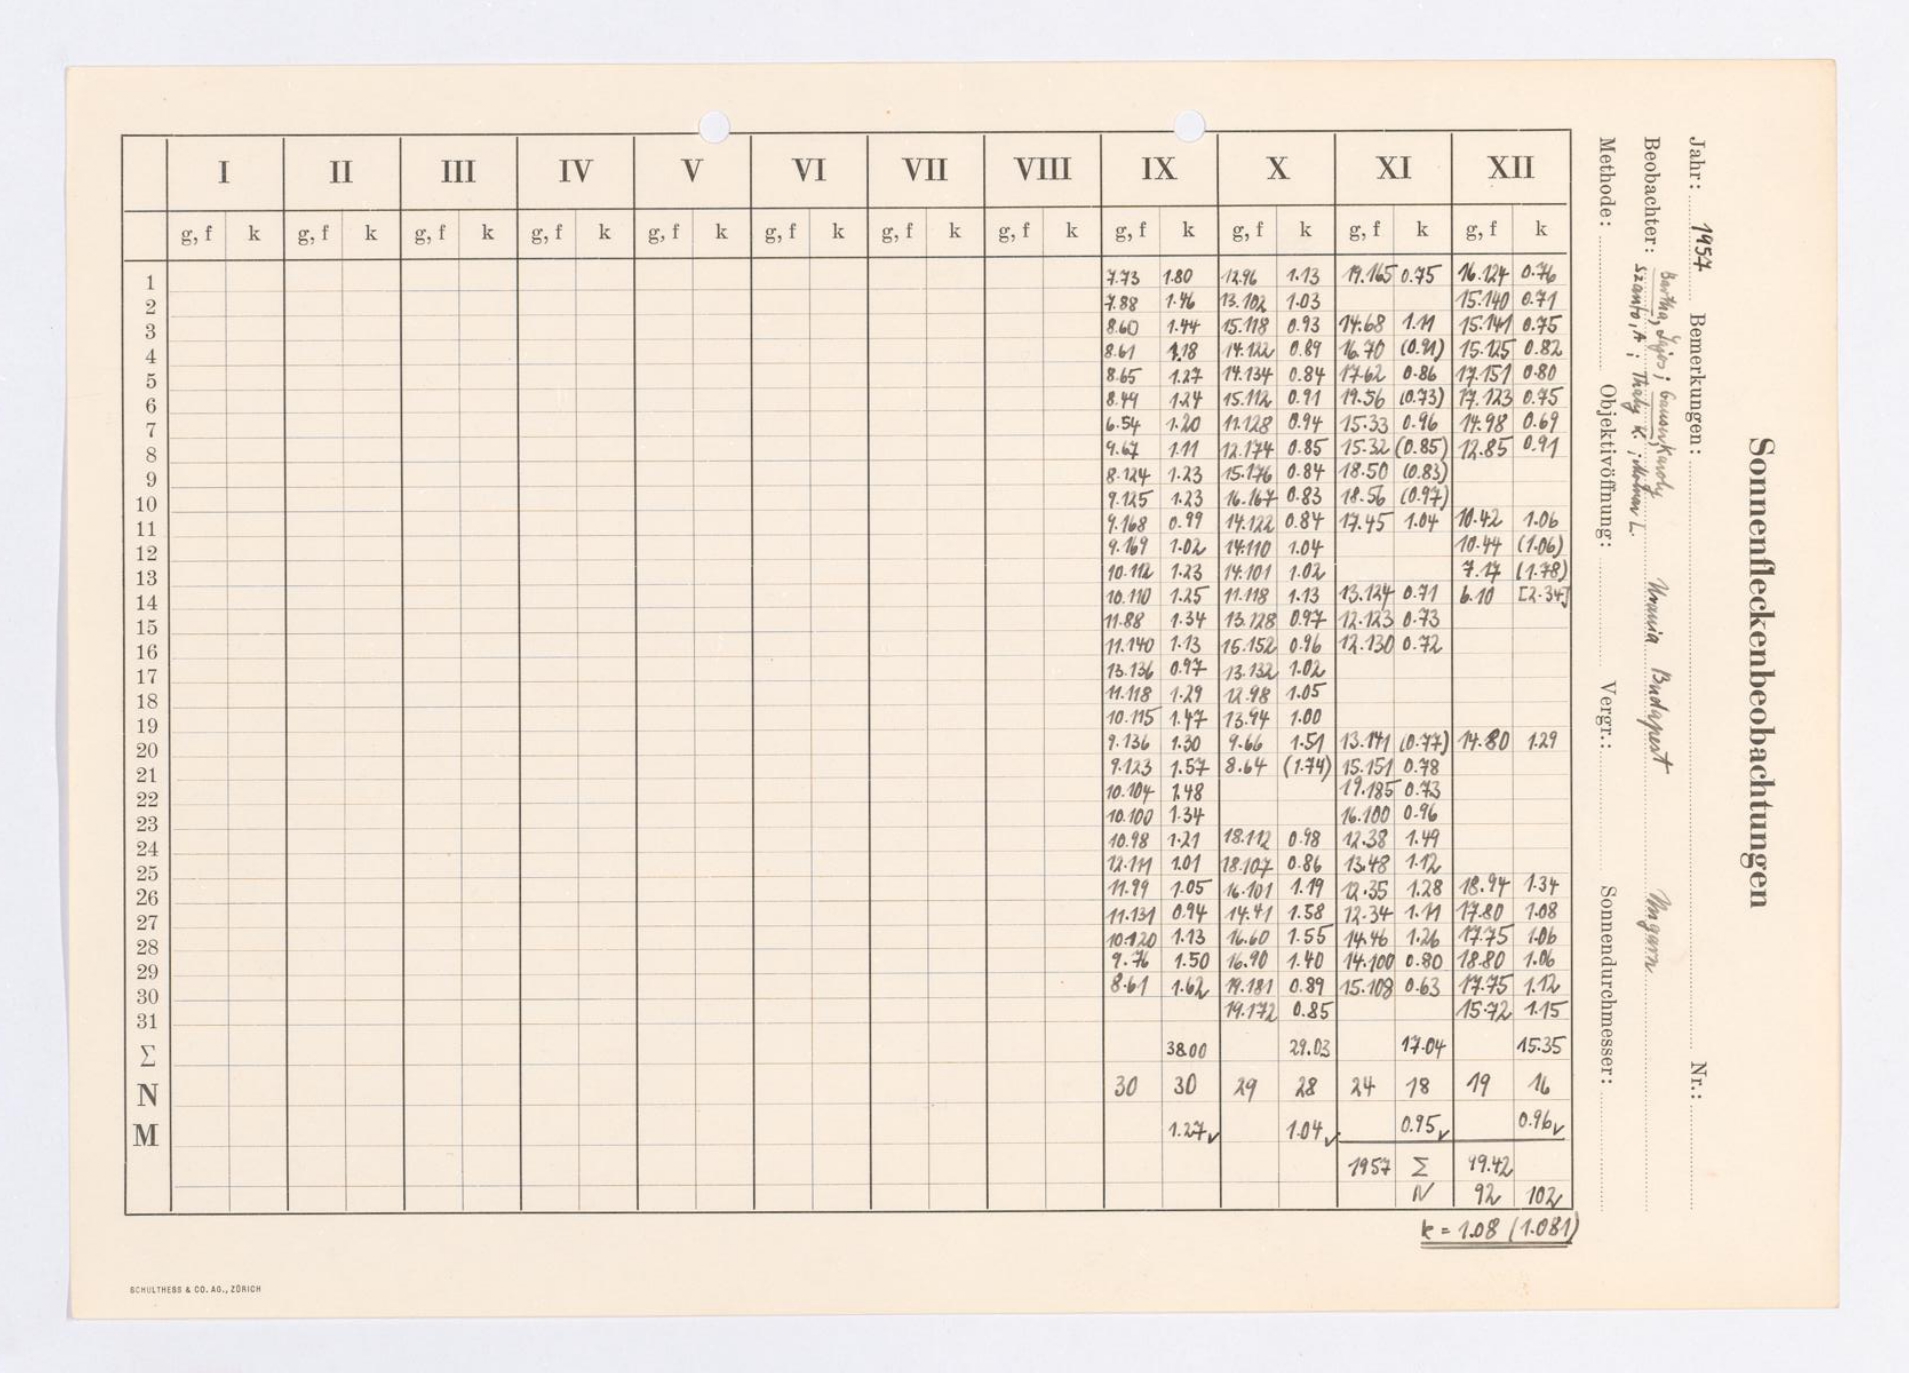 Sonnenfleckenbeobachtungen
Jahr: 1957 Bemerkungen: Nr.:
Beobachter: Bartha, Lajos; Károly Urania Budapest Ungarn
Szánto, A; Thaly K.; L.
Methode: Objektivöffnung: Vergr.: Sonnendurchmesser:
I II III IV V VI VII VIII IX X XI XII
g, f k g, f k g, f k g, f k g, f k g, f k g, f k g, f k g, f k g, f k g, f k g, f k
1 7.73 1.80 12.96 1.13 19.165 0.75 16.124 0.76
2 7.88 1.46 13.102 1.03 15.140 0.71
3 8.60 1.44 15.118 0.93 14.68 1.11 15.141 0.75
4 8.61 1.18 14.122 0.89 16.70 (0.91) 15.125 0.82
5 8.65 1.27 14.134 0.84 17.62 0.86 17.151 0.80
6 8.49 1.24 15.112 0.91 19.56 (0.73) 17.123 0.75
7 6.54 1.20 11.128 0.94 15.33 0.96 14.98 0.69
8 9.67 1.11 12.174 0.85 15.32 (0.85) 12.85 0.91
9 8.124 1.23 15.176 0.84 18.50 (0.83)
10 9.125 1.23 16.167 0.83 18.56 (0.97)
11 9.168 0.99 14.122 0.84 17.45 1.04 10.42 1.06
12 9.169 1.02 14.110 1.04 10.44 (1.06)
13 10.112 1.23 14.101 1.02 7.17 (1.78)
14 10.110 1.25 11.118 1.13 13.124 0.71 6.10 [2.34]
15 11.88 1.34 13.128 0.97 12.123 0.73
16 11.140 1.13 15.152 0.96 12.130 0.72
17 13.136 0.97 13.132 1.02
18 11.118 1.29 12.98 1.05
19 10.115 1.47 13.94 1.00
20 9.136 1.30 9.66 1.51 13.141 (0.77) 14.80 1.29
21 9.123 1.57 8.64 (1.74) 15.151 0.78
22 10.104 1.48 19.185 0.73
23 10.100 1.34 16.100 0.96
24 10.98 1.21 18.112 0.98 12.38 1.49
25 12.111 1.01 18.107 0.86 13.48 1.12
26 11.99 1.05 16.101 1.19 12.35 1.28 18.94 1.34
27 11.131 0.94 14.41 1.58 12.34 1.11 17.80 1.08
28 10.120 1.13 16.60 1.55 14.46 1.26 17.75 1.06
29 9.76 1.50 16.90 1.40 14.100 0.80 18.80 1.06
30 8.61 1.62 19.181 0.89 15.108 0.63 17.75 1.12
31 19.172 0.85 15.72 1.15
Σ 38.00 29.03 17.04 15.35
N 30 30 29 28 24 18 19 16
M 1.27✓ 1.04✓ 0.95✓ 0.96✓
1957 Σ 99.42
N 92 102
k = 1.08 (1.081)
SCHULTHESS & CO. AG., ZÜRICH